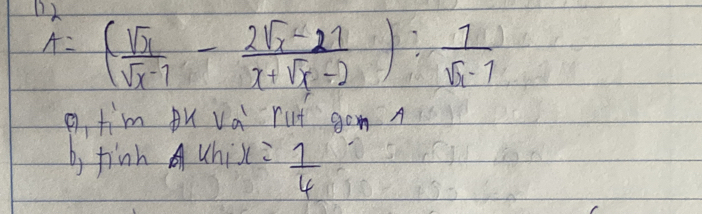 b2
A = (√x/(√x - 1) - (2√x - 21)/(x + √x - 2)) : 1/(√x - 1)
a, tìm ĐK và rút gọn A
b, tính A khi x = 1/4